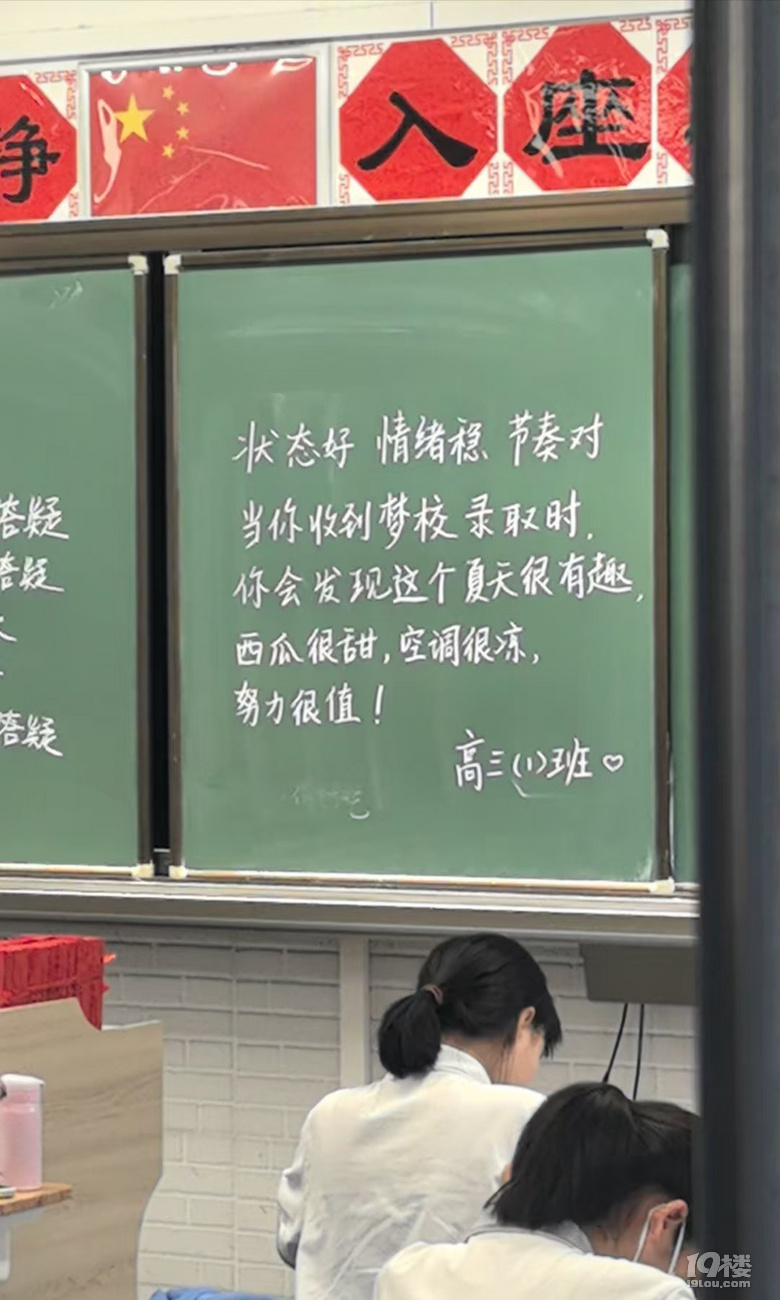 静
入座
答疑
答疑
答疑
状态好 情绪稳 节奏对
当你收到梦校录取时,
你会发现这个夏天很有趣,
西瓜很甜,空调很冻,
努力很值!
高三(1)班♡
19楼
19lou.com